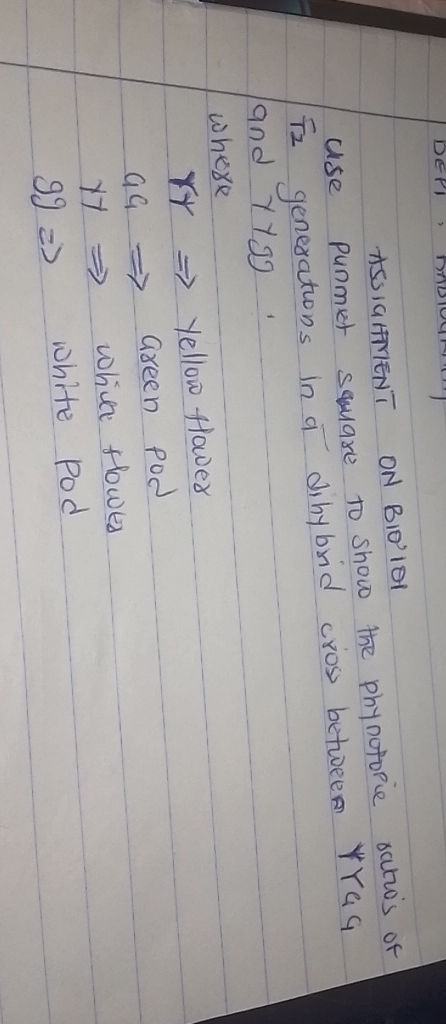 ASSIGNMENT ON BIO'101
Use punmet square to show the phynotopic ratio's of
F2 generations in a dihybrid cross between YYGG
and yygg.
where
YY => Yellow flower
GG => Green pod
yy => white flower
gg => white pod